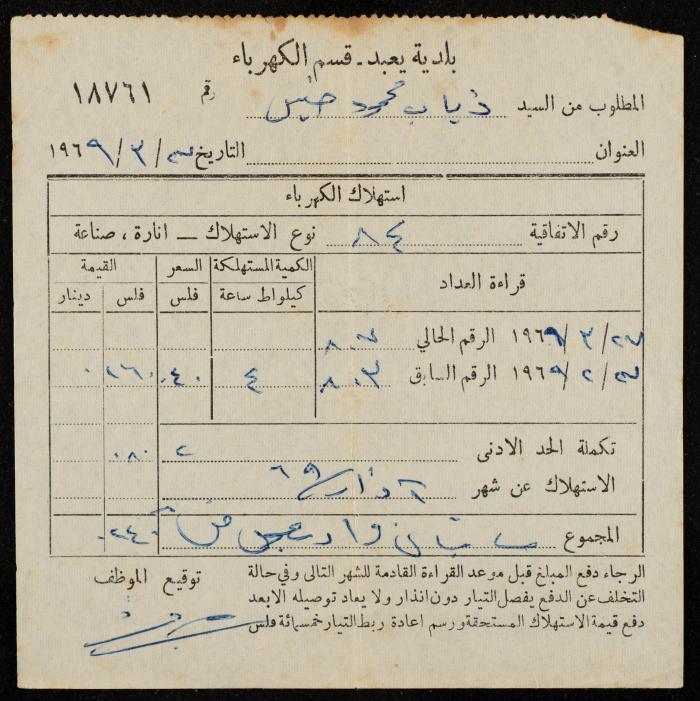 بلدية يعبد - قسم الكهرباء
رقم ١٨٧٦١
المطلوب من السيد ذياب محمود
العنوان التاريخ /٣/١٩٦٩
استهلاك الكهرباء
رقم الاتفاقية ٨٤ نوع الاستهلاك — انارة ، صناعة
قراءة العداد الكمية المستهلكة السعر القيمة
كيلواط ساعة فلس فلس دينار
/٣/١٩٦٩ الرقم الحالي ٨٠٧
/٢/١٩٦٩ الرقم السابق ٨٠٣ ٤ ٠٤٠ ١٦٠
تكملة الحد الادنى ٢ ٠٨٠
الاستهلاك عن شهر آذار ٦٩
المجموع مايتان واربعون فلس ٢٤٠
الرجاء دفع المبلغ قبل موعد القراءة القادمة للشهر التالى وفي حالة
التخلف عن الدفع يفصل التيار دون انذار ولا يعاد توصيله الا بعد
دفع قيمة الاستهلاك المستحقة ورسم اعادة ربط التيار خمسمائة فلس
توقيع الموظف